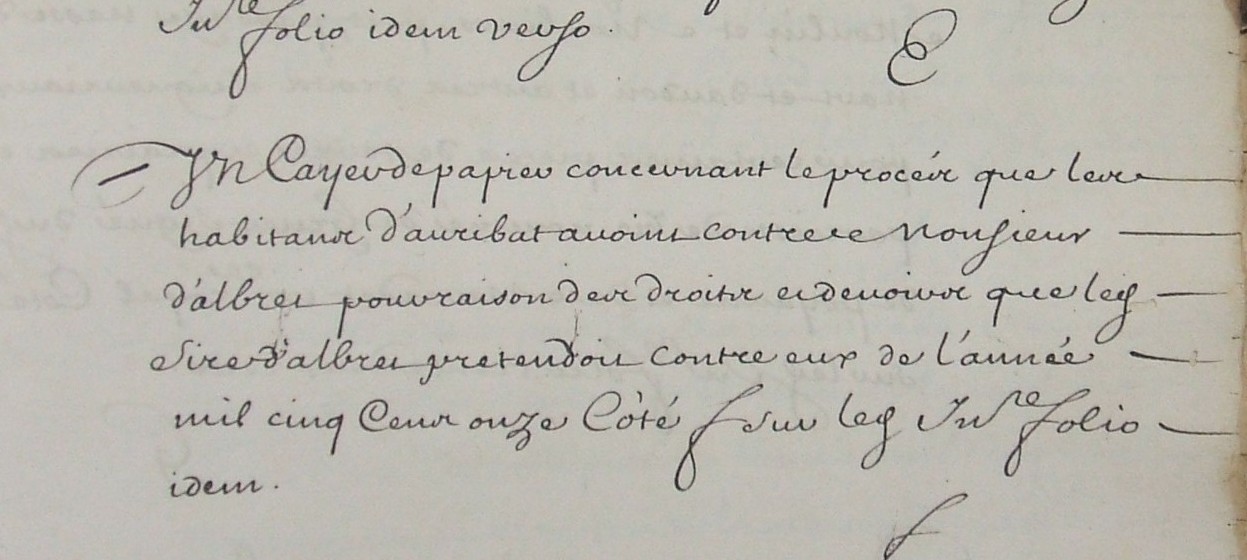 Inv.re folio idem verso.
E
Un Cayer de papier concernant le procés que les
habitans d'auribat avoint contre le Monsieur
d'albret pour raison des droits et devoirs que led
Sire d'albret pretendoit contre eux de l'année
mil cinq Cens onze Côté f sur led Inv.re folio
idem.
f